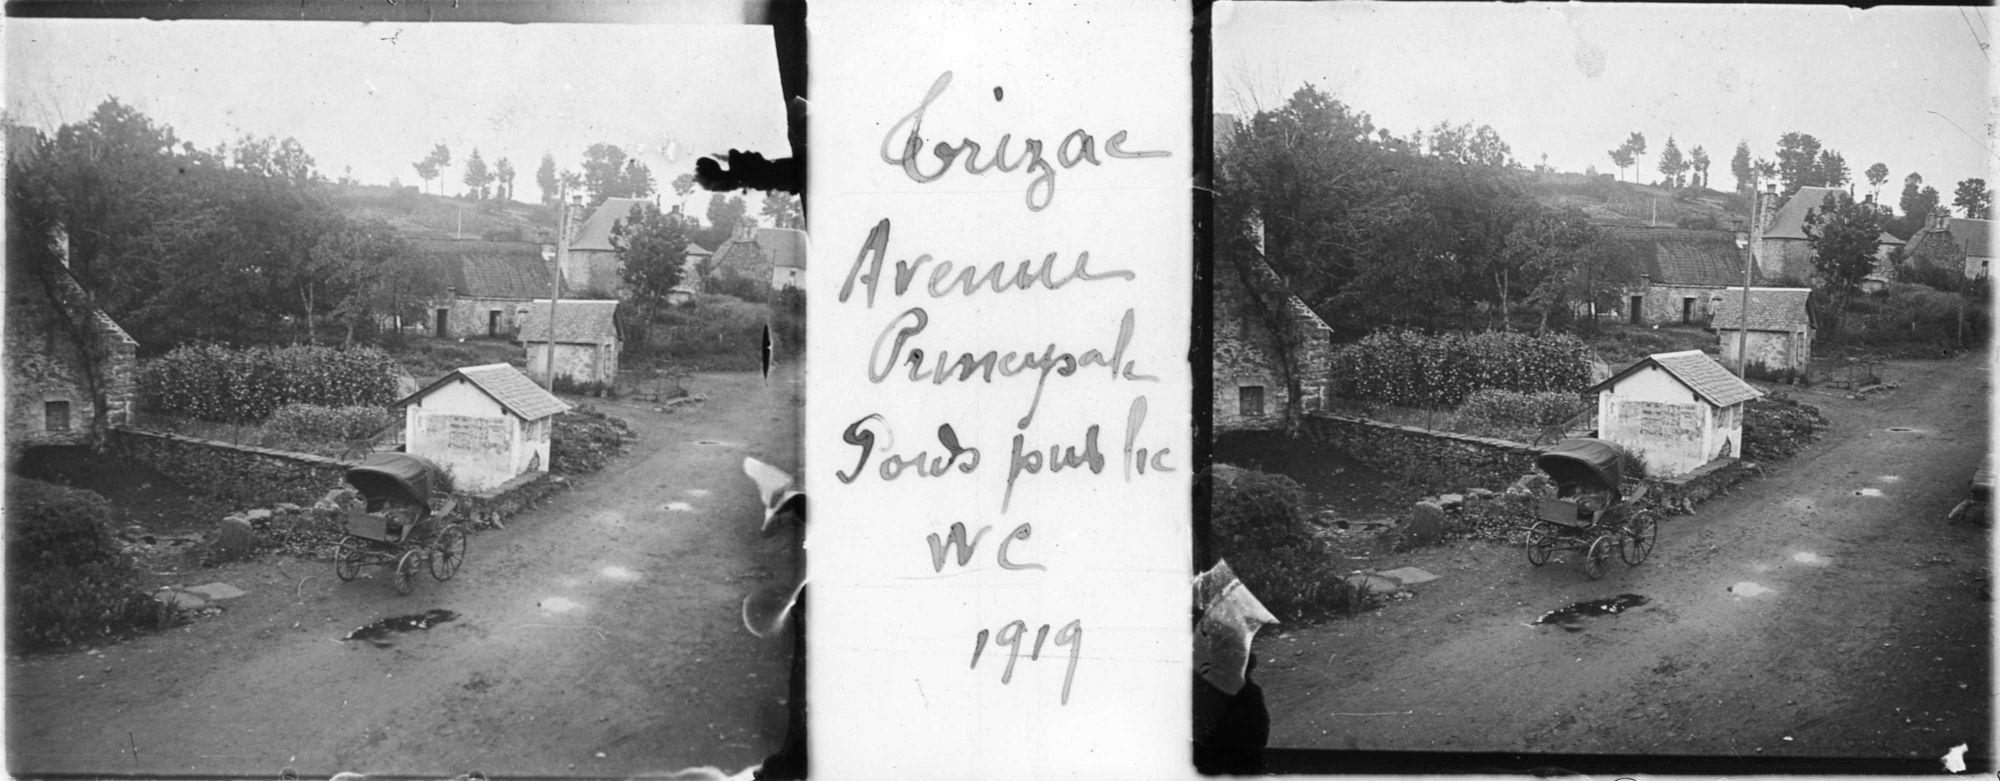 Trizac
Avenue
Principale
Poids public
WC
1919